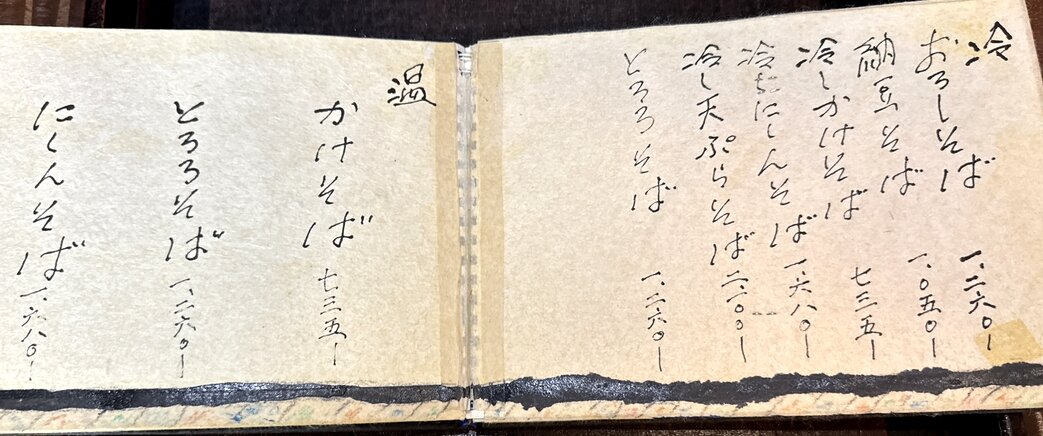 冷
おろしそば 一、二六〇ー
納豆そば 一、〇五〇ー
冷しかけそば 七三五ー
冷 にしんそば 一、六八〇ー
冷し天ぷらそば 二、一〇〇ー
とろろそば 一、二六〇ー
温
かけそば 七三五ー
とろろそば 一、二六〇ー
にしんそば 一、六八〇ー